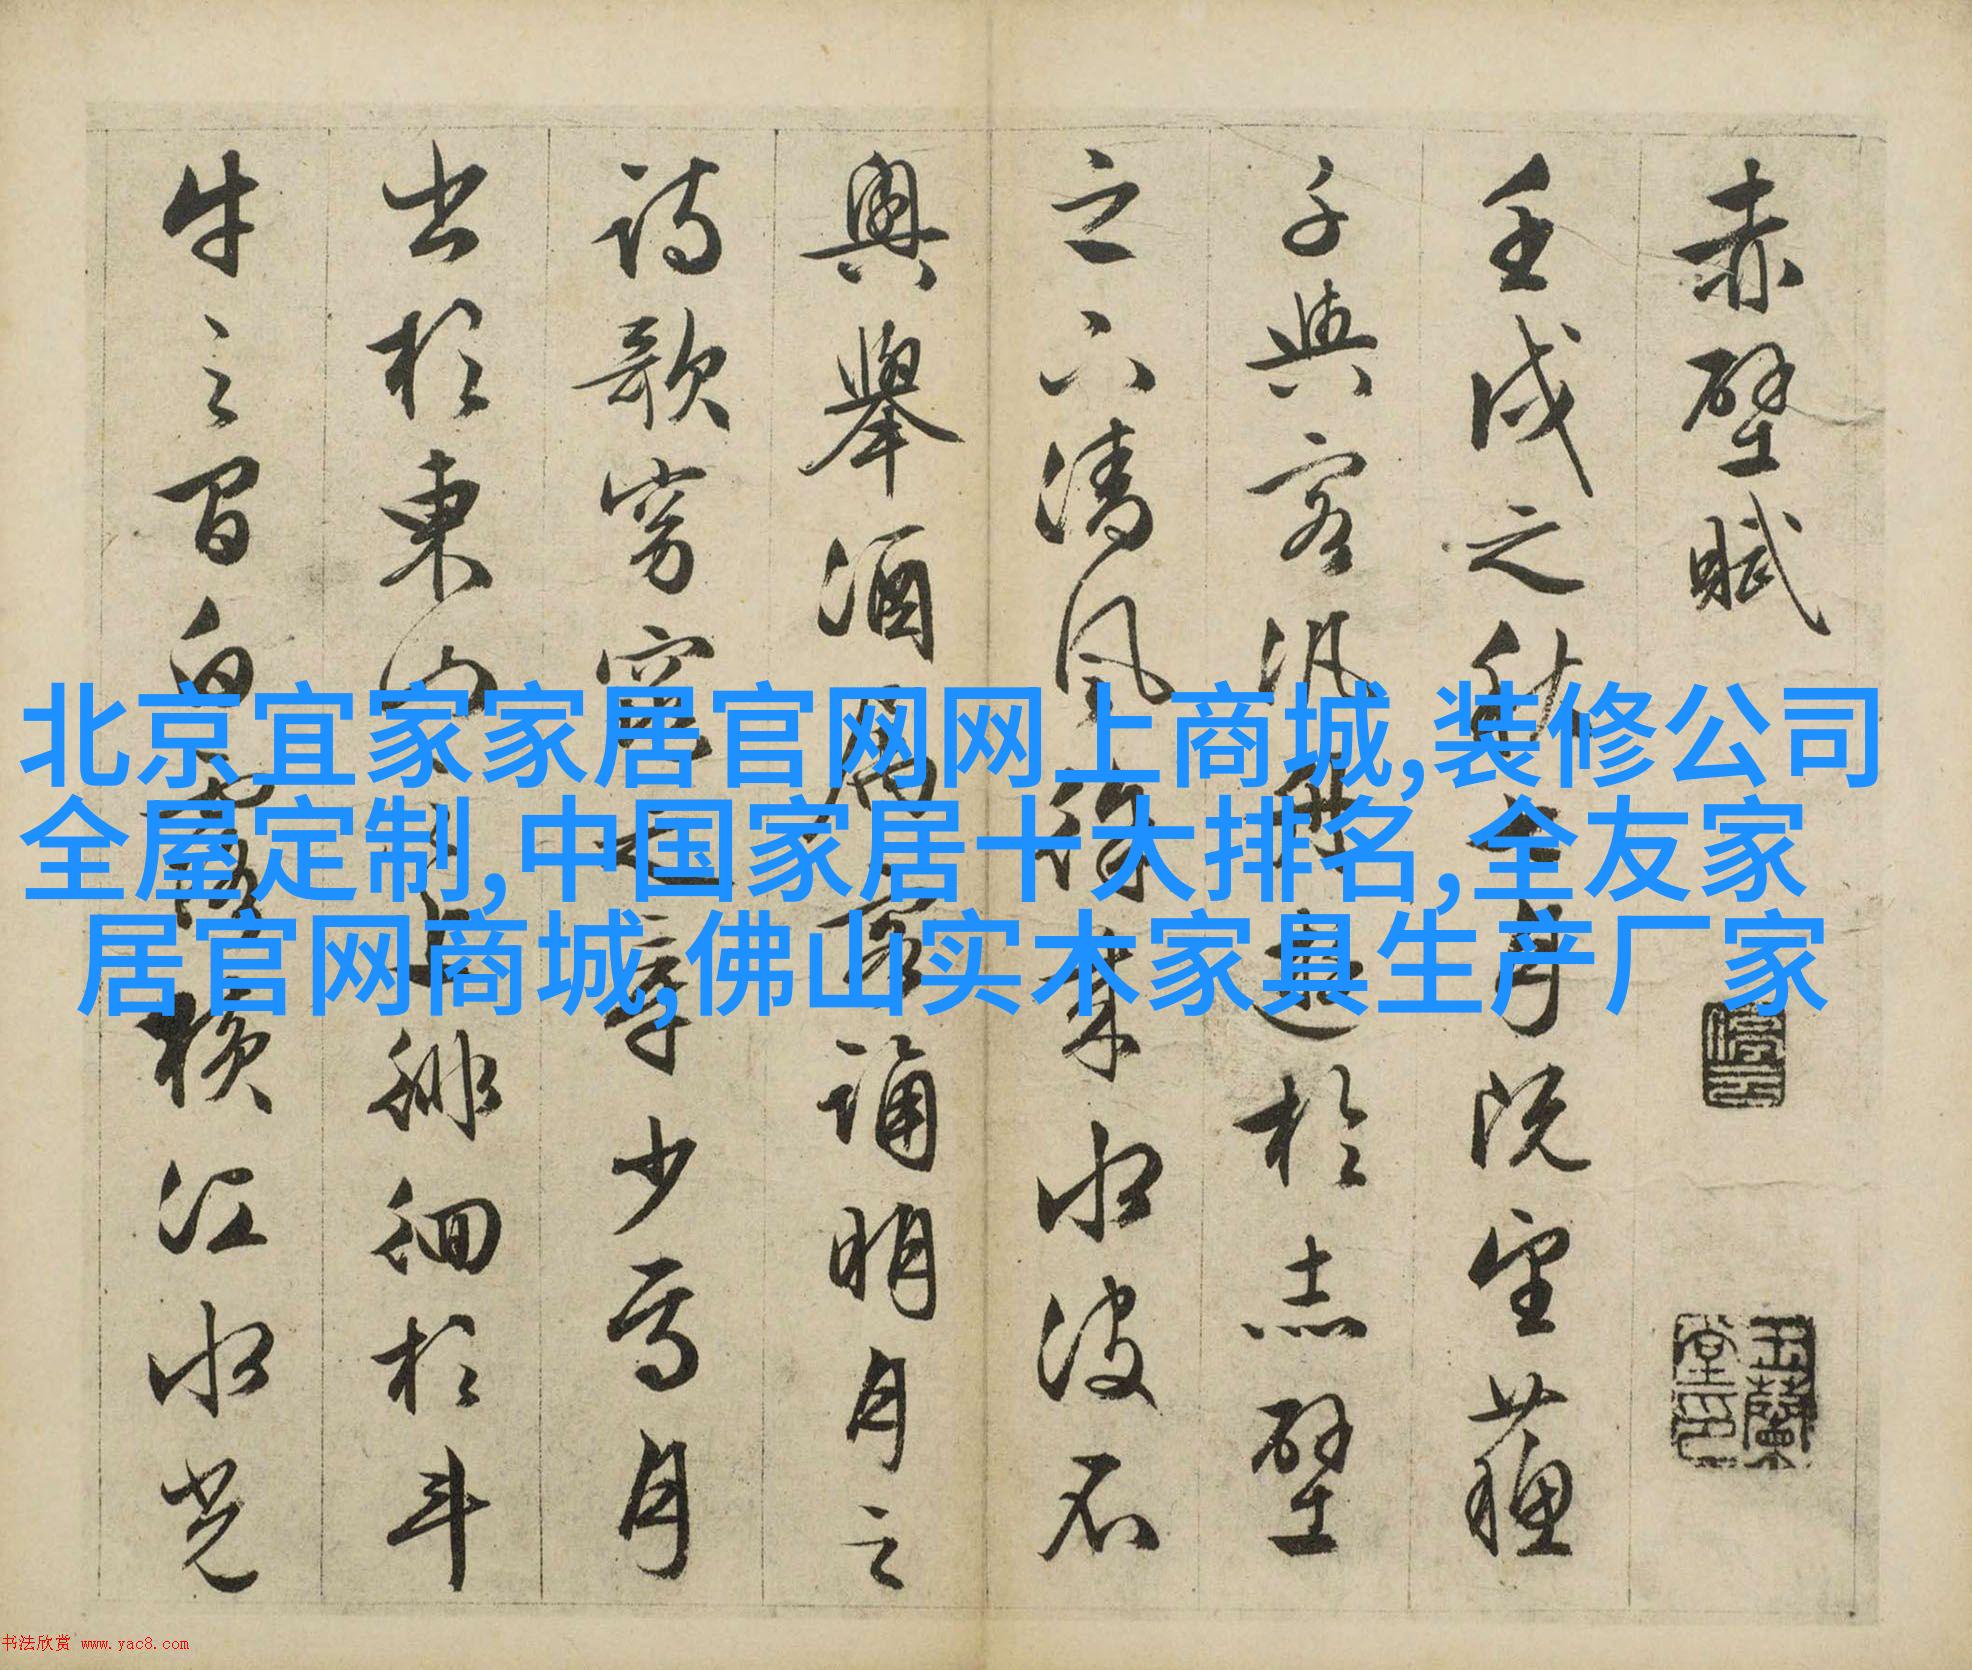 赤壁賦
停雲
玉蘭堂印
壬戌之秋七月既望蘇
子與客汎舟遊於赤壁
之下清風徐来水波不
興舉酒屬客誦明月之
詩歌窈窕之章少焉月
出於東山之上徘徊於斗
牛之間白露横江水光
北京宜家家居官网网上商城,装修公司
全屋定制,中国家居十大排名,全友家
居官网商城,佛山实木家具生产厂家
书法欣赏 www.yac8.com